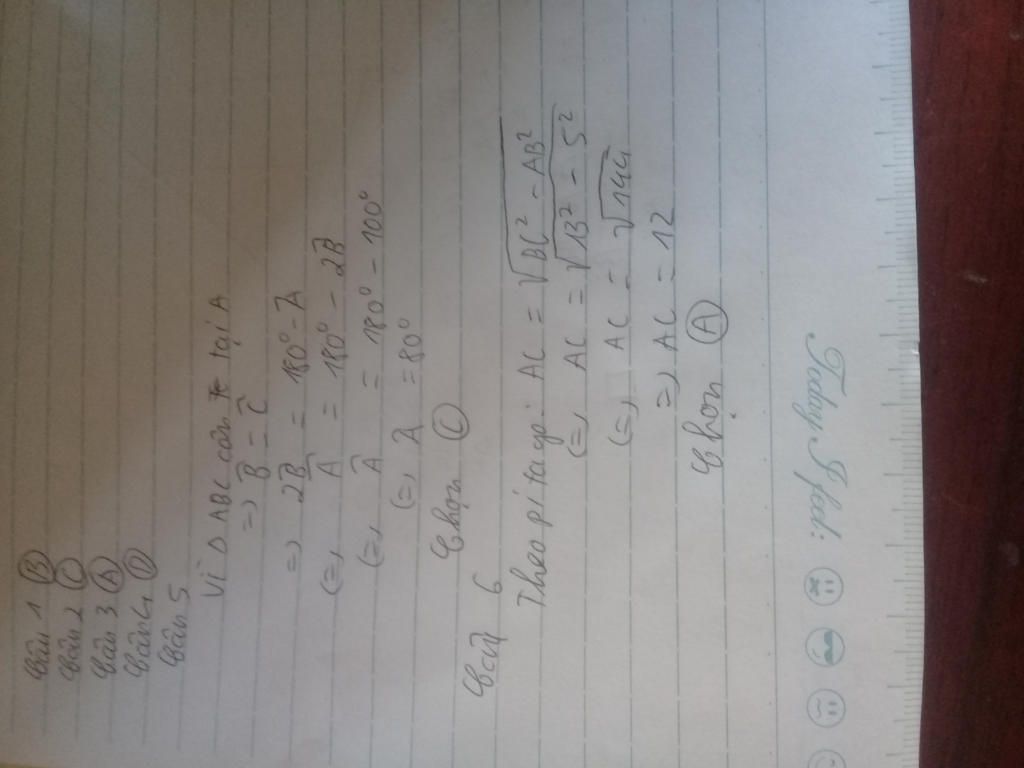 Câu 1 B
Câu 2 C
Câu 3 A
Câu 4 D
Câu 5
Vì Δ ABC cân tại A
=> B̂ = Ĉ
=> 2B̂ = 180° - Â
(=) Â = 180° - 2B̂
(=) Â = 180° - 100°
(=) Â = 80°
Chọn C
Câu 6
Theo pi ta go: AC = √BC² - AB²
(=) AC = √13² - 5²
(=) AC = √144
=> AC = 12
Chọn A
Today I feel: